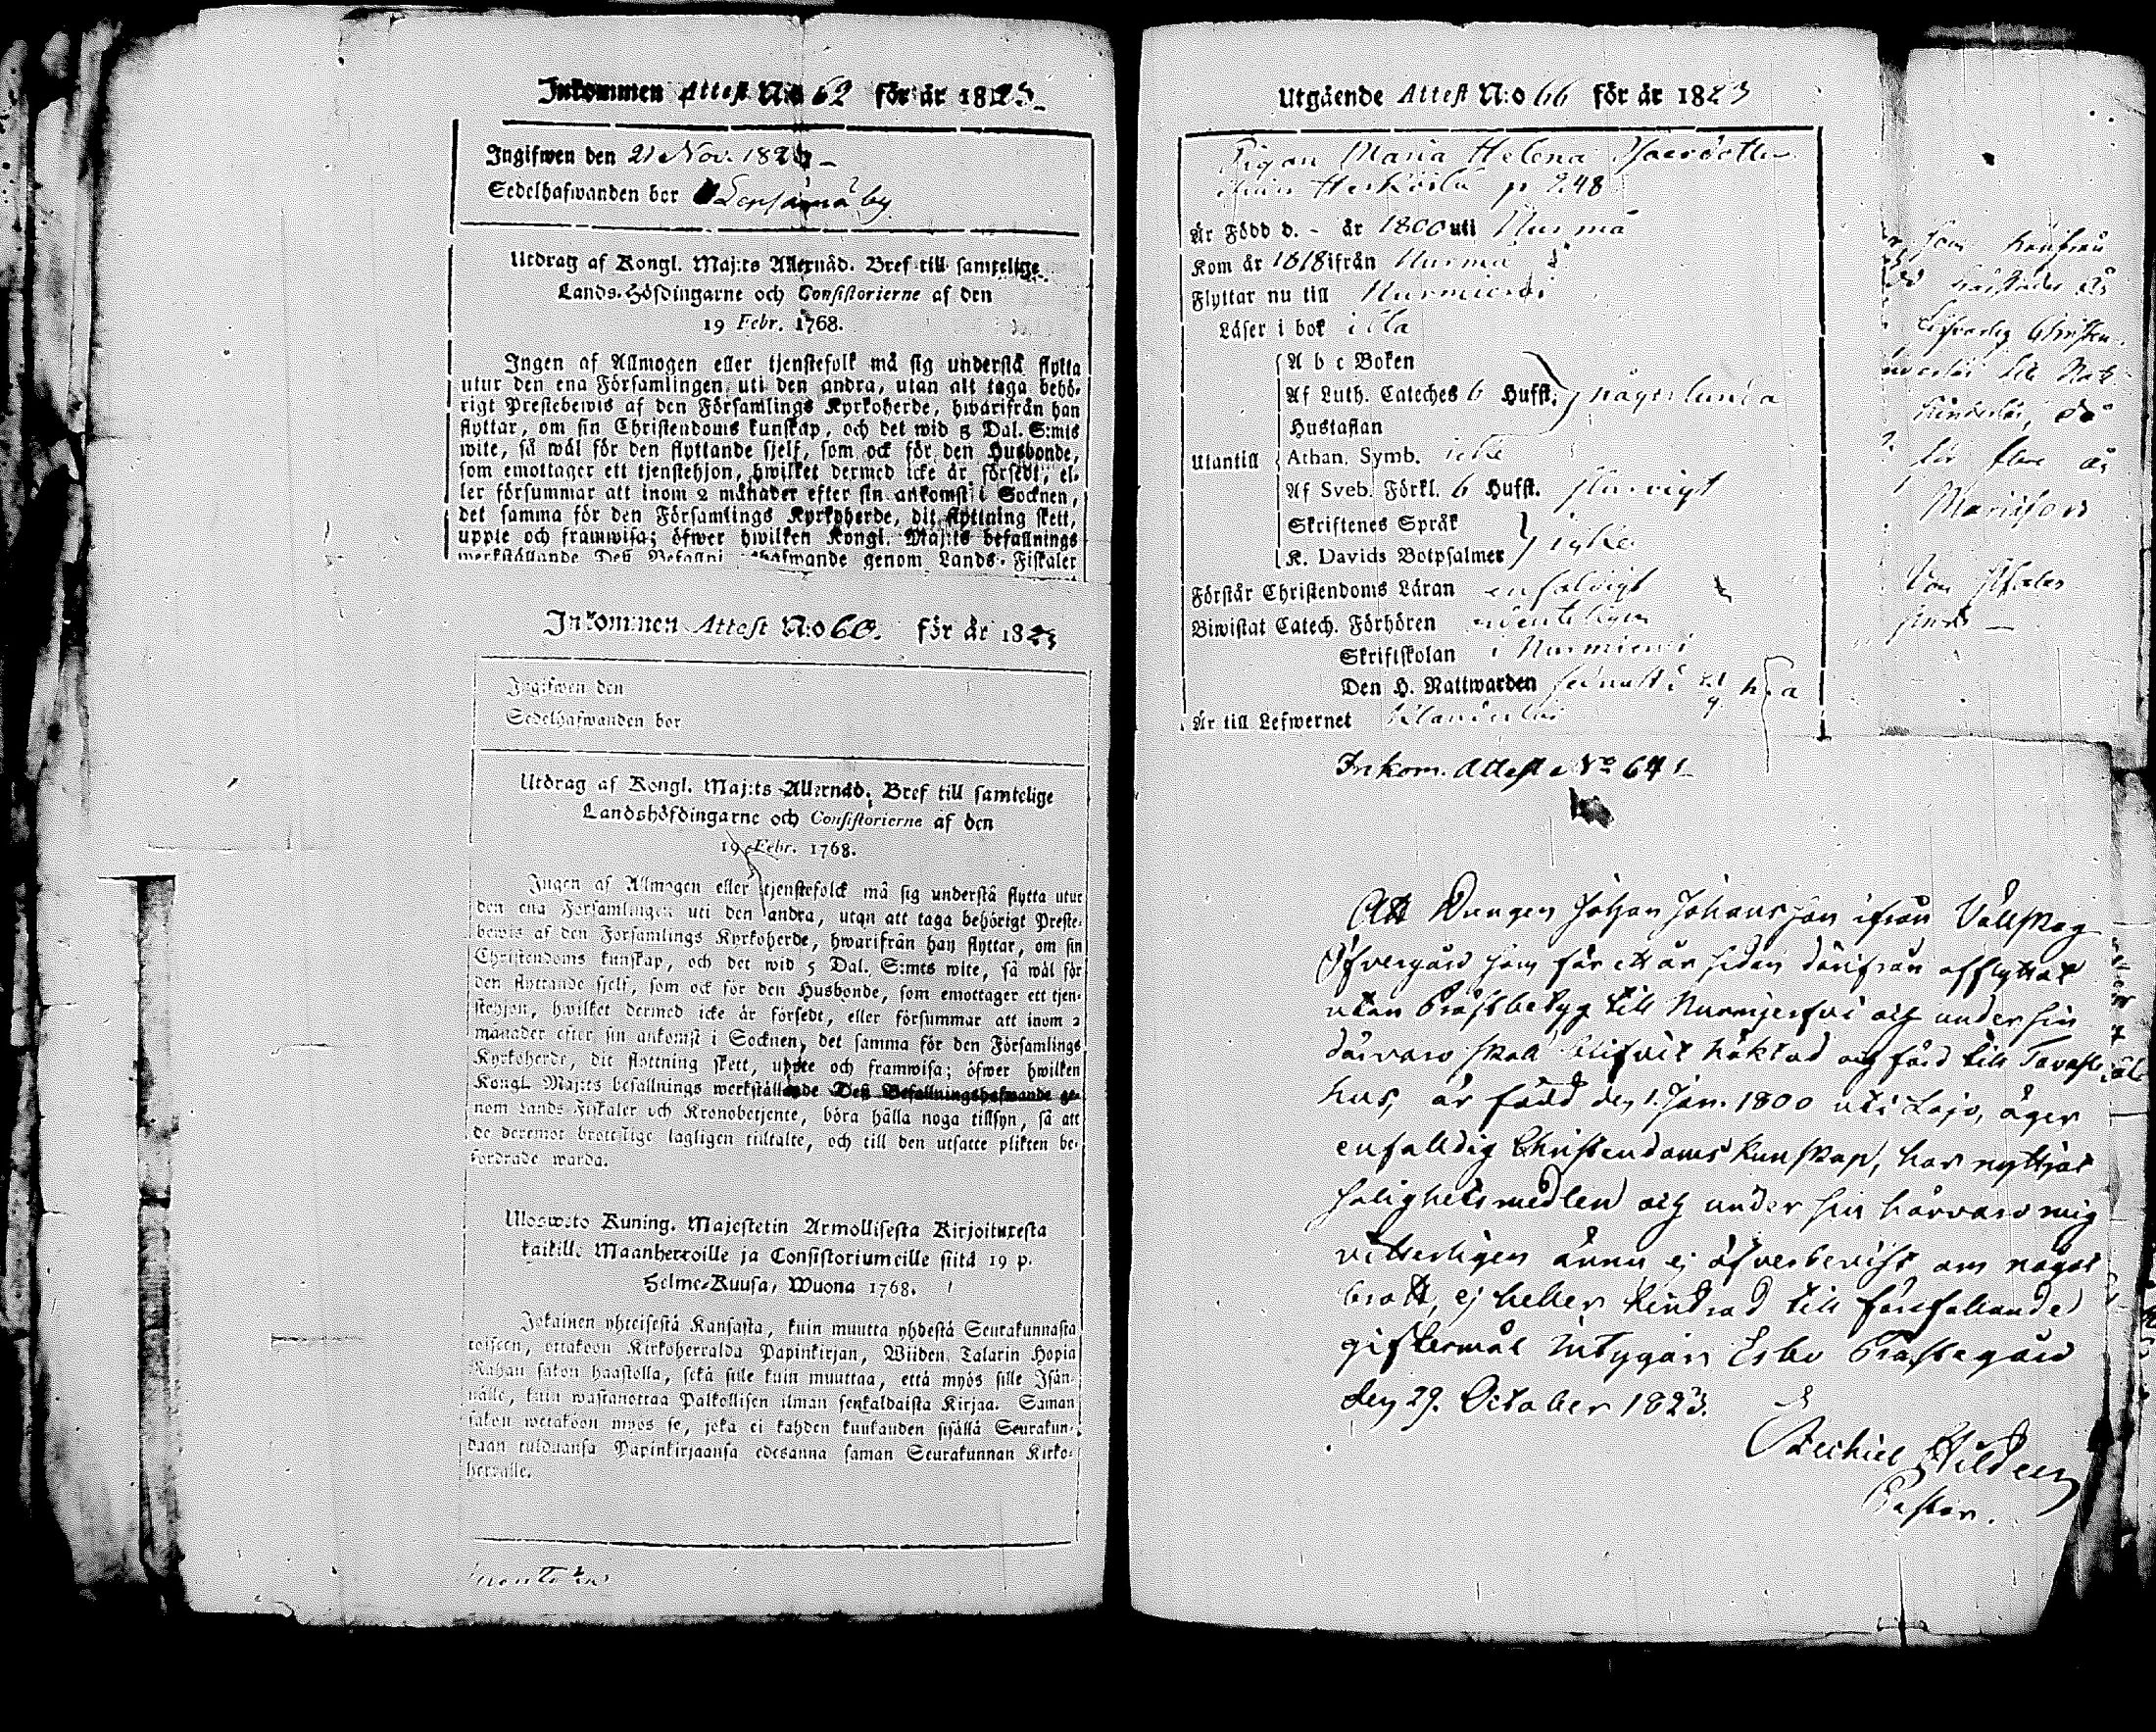 Inkommen Attest N:o 62 för år 1823
Ingifwen den 21 Nov. 1823
Sedelhafwanden bor
Utdrag af Kongl. Maj:ts Allernåd. Bref till samtelige
Lands-Höfdingarne och Consistorierne af den
19 Febr. 1768.
Ingen af Allmogen eller tjenstefolk må sig understå flytta
utur den ena Församlingen uti den andra, utan att taga behö-
rigt Prestebewis af den Församlings Kyrkoherde, hwarifrån han
flyttar, om sin Christendoms kunskap, och det wid 5 Dal. S:mts
wite, så wäl för den flyttande sjelf, som ock för den Husbonde,
som emottager ett tjenstehjon, hwilket dermed icke är försedt, el-
ler försummar att inom 2 månader efter sin ankomst i Socknen,
det samma för den Församlings Kyrkoherde, dit flyttning skett,
uppte och framwisa; öfwer hwilken Kongl. Maj:ts befallnings
werkställande Deß Befallningshafwande genom Lands-Fiskaler
Inkommen Attest N:o 60. för år 1823
Ingifwen den
Sedelhafwanden bor
Utdrag af Kongl. Maj:ts Allernåd. Bref till samtelige
Landshöfdingarne och Consistorierne af den
19 Febr. 1768.
Ingen af Allmogen eller tjenstefolck må sig understå flytta utur
den ena Församlingen uti den andra, utan att taga behörigt Preste-
bewis af den Församlings Kyrkoherde, hwarifrån han flyttar, om sin
Christendoms kunskap, och det wid 5 Dal. S:mts wite, så wäl för
den flyttande sjelf, som ock för den Husbonde, som emottager ett tjen-
stehjon, hwilket dermed icke är försedt, eller försummar att inom 2
månader efter sin ankomst i Socknen, det samma för den Församlings
Kyrkoherde, dit flyttning skett, uppte och framwisa; öfwer hwilken
Kongl. Maj:ts befallnings werkställande Deß Befallningshafwande ge-
nom Lands Fiskaler och Kronobetjente, böra hålla noga tillsyn, så att
de deremot brottslige lagligen tilltalte, och till den utsatte plikten be-
fordrade warda.
Ulosweto Kuning. Majestetin Armollisesta Kirjoituresta
kaikille Maanherroille ja Consistoriumeille siitä 19 p.
Helme-Kuusa, Wuona 1768.
Jokainen yhteisestä Kansasta, kuin muutta yhdestä Seurakunnasta
toiseen, ottakoon Kirkoherralda Papinkirjan, Wiiden Talarin Hopia
Rahan sakon haastolla, sekä sille kuin muuttaa, että myös sille Isän-
nälle, kuin wastanottaa Palkollisen ilman senkaldaista Kirjaa. Saman
sakon wetäköön myös se, joka ei kahden kuukauden sisällä Seurakun-
daan tulduansa Papinkirjaansa edesanna saman Seurakunnan Kirko-
herralle.
Utgående Attest N:o 66 för år 1823
Pigan Maria Helena
p 248
Är Född d. - år 1800 uti Nurmi
Kom år 1818 ifrån Nurmi
Flyttar nu till Nurmijerwi
Läser i bok illa
A b c Boken
Af Luth. Cateches 6 Hufst. någorlunda
Hustaflan
Utantill Athan. Symb. icke
Af Sveb. Förkl. 6 Hufst.
Skriftenes Språk
K. Davids Botpsalmer icke
Förstår Christendoms Läran enfaldigt
Biwistat Catech. Förhören ordenteligen
Skriftskolan i Nurmierwi
Den H. Nattwarden
Är till Lefwernet klanderlös
Inkom. Attest No 64
Att Drengen Johan Johansson ifrån Vällskog
Öfvergård som för ett år sedan därifrån afflyttat
utan Prästbetyg till Nurmijerfvi och under sin
därvaro skall blifvit häktad och förd till Tavaste
hus, är född den 1. Jan. 1800 uti Lojo, äger
enfalldig Christendoms kunskap, har nyttjat
salighetsmedlen och under sin härvaro mig
vitterligen ännu ej öfverbevist om något
brott, ej heller hindrad till förefallande
giftermål intygar Esbo Prästegård
den 29. October 1823.
Pastor.